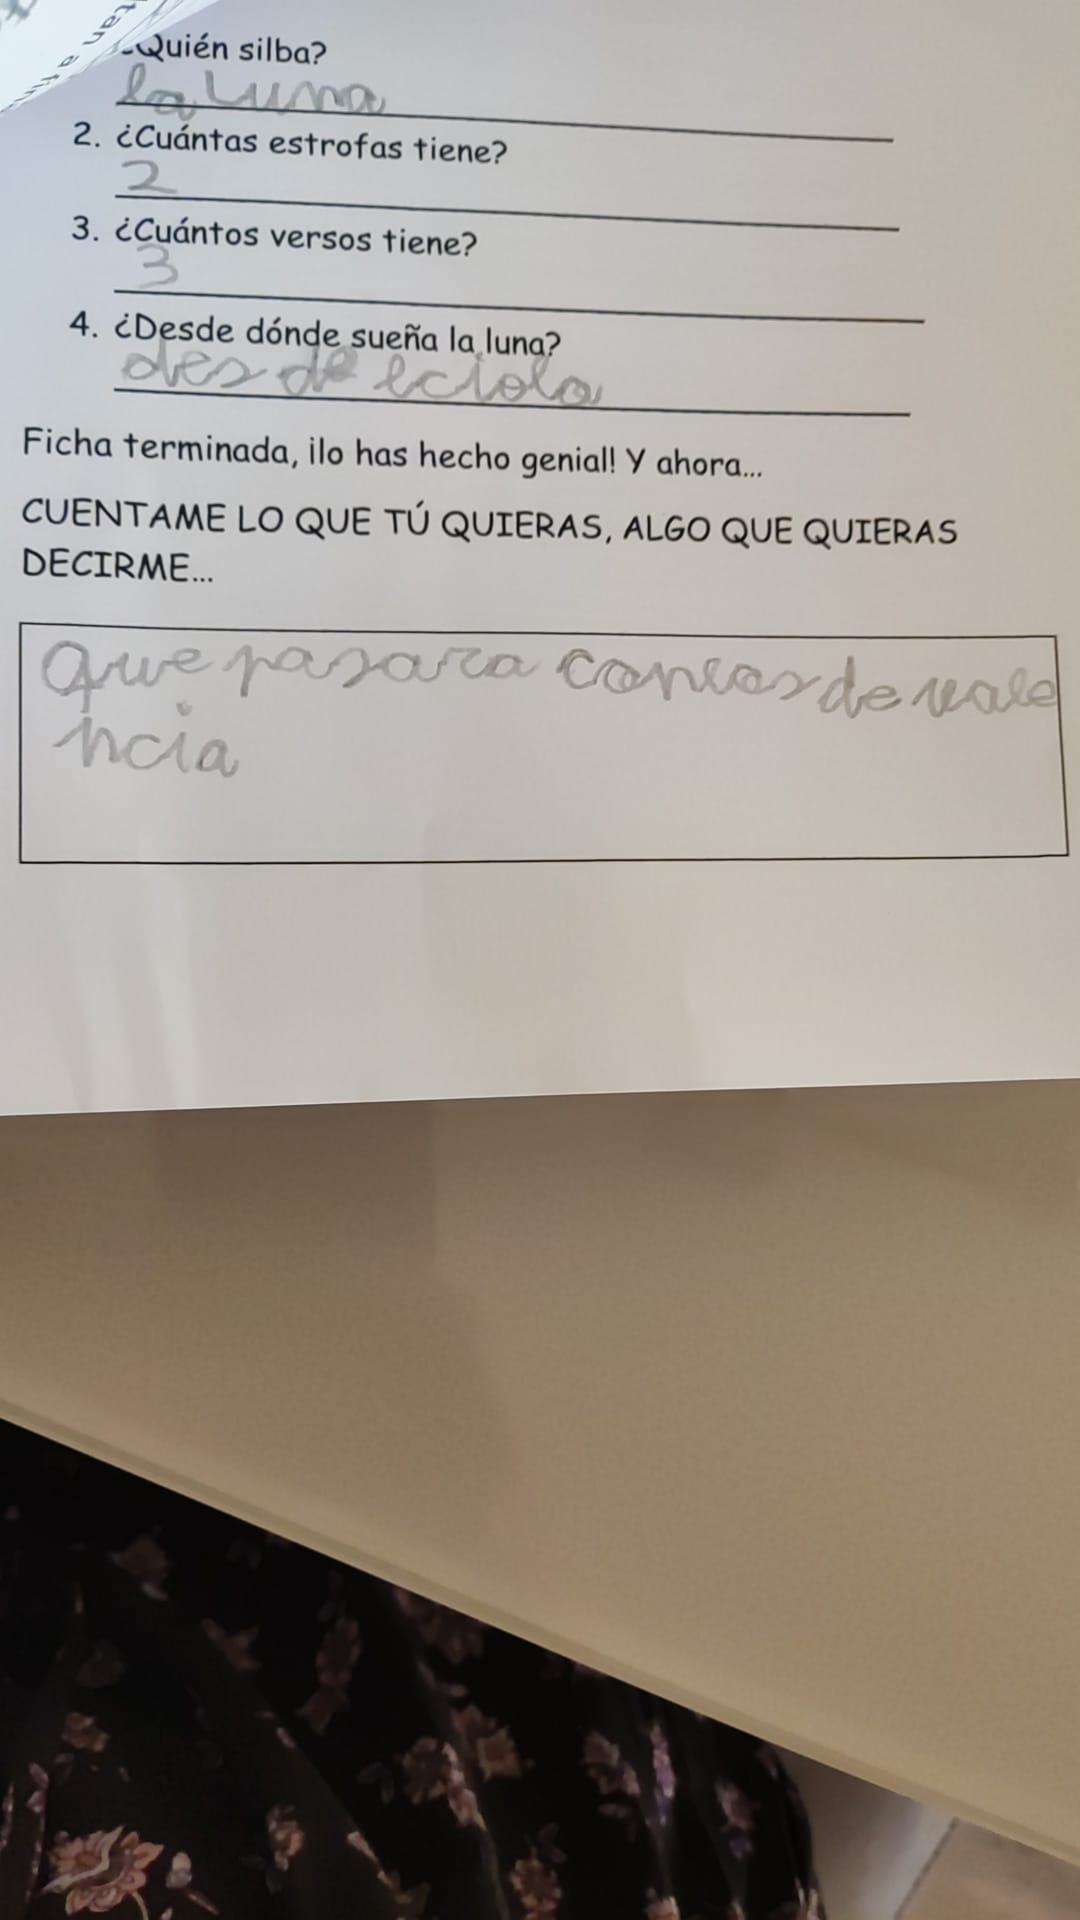 ¿Quién silba?
la Luna
2. ¿Cuántas estrofas tiene?
2
3. ¿Cuántos versos tiene?
3
4. ¿Desde dónde sueña la luna?
des de eciolo
Ficha terminada, ¡lo has hecho genial! Y ahora...
CUENTAME LO QUE TÚ QUIERAS, ALGO QUE QUIERAS
DECIRME...
que pasara con los de vale
ncia